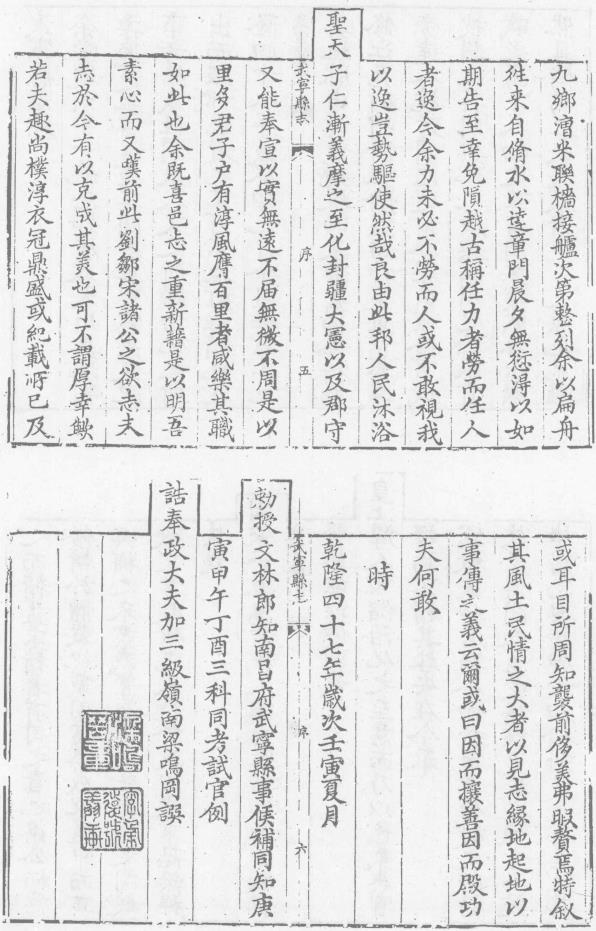 九鄉漕米聯檣接艫次第整列余以扁舟
徃來自脩水以達章門晨夕無愆淂以如
期告至幸免隕越古稱任力者勞而任人
者逸今余力未必不勞而人或不敢視我
以逸豈勢驅使然哉良由此邦人民沐浴
聖天子仁漸義摩之至化封疆大憲以及郡守
武寧縣志 序 五
又能奉宣以實無遠不届無微不周是以
里多君子户有淳風膺百里者咸樂其職
如此也余既喜邑志之重新藉是以明吾
素心而又嘆前此劉鄒宋諸公之欲志未
志於今有以克成其美也可不謂厚幸歟
若夫趣尚樸淳衣冠鼎盛或紀載所已及
或耳目所周知襲前侈美弗暇贅焉特叙
其風土民情之大者以見志緣地起地以
事傳之義云爾或曰因而攘善因而殿功
夫何敢
時
乾隆四十七年歲次壬寅夏月
武寧縣志 序 六
勅授文林郎知南昌府武寧縣事候補同知庚
寅甲午丁酉三科同考試官例
誥奉政大夫加三級嶺南梁鳴岡譔